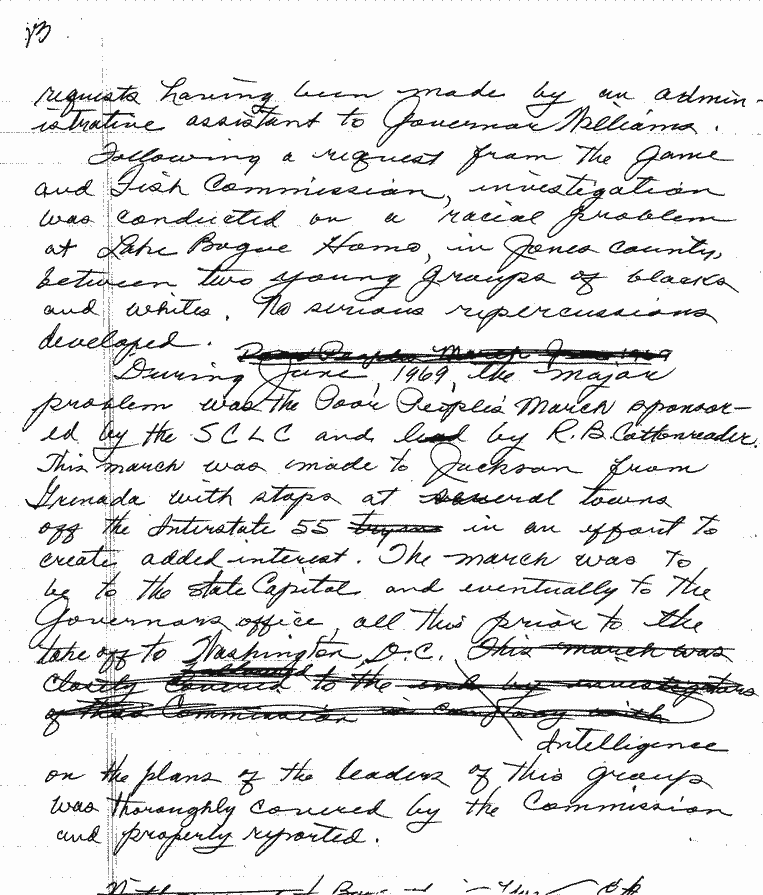 requests having been made by an admin-
istrative assistant to Governor Williams.
Following a request from the Game
and Fish Commission, investigation
was conducted on a racial problem
at Lake Bogue Homo, in Jones County,
between two young groups of blacks
and whites. No serious repercussions
developed.
Poor Peoples March June 1969
During June, 1969, the major
problem was the Poor People's March sponsor-
ed by the SCLC and lead by R.B. Cottonreader.
This march was made to Jackson from
Grenada with stops at several towns
off the Interstate 55 in an effort to
create added interest. The march was to
be to the State Capitol and eventually to the
Governors office, all this prior to the
take off to Washington, D.C. This march was
although
closely covered to the end by investigators
of this Commission in company with
Intelligence
on the plans of the leaders of this group
was thoroughly covered by the Commission
and properly reported.